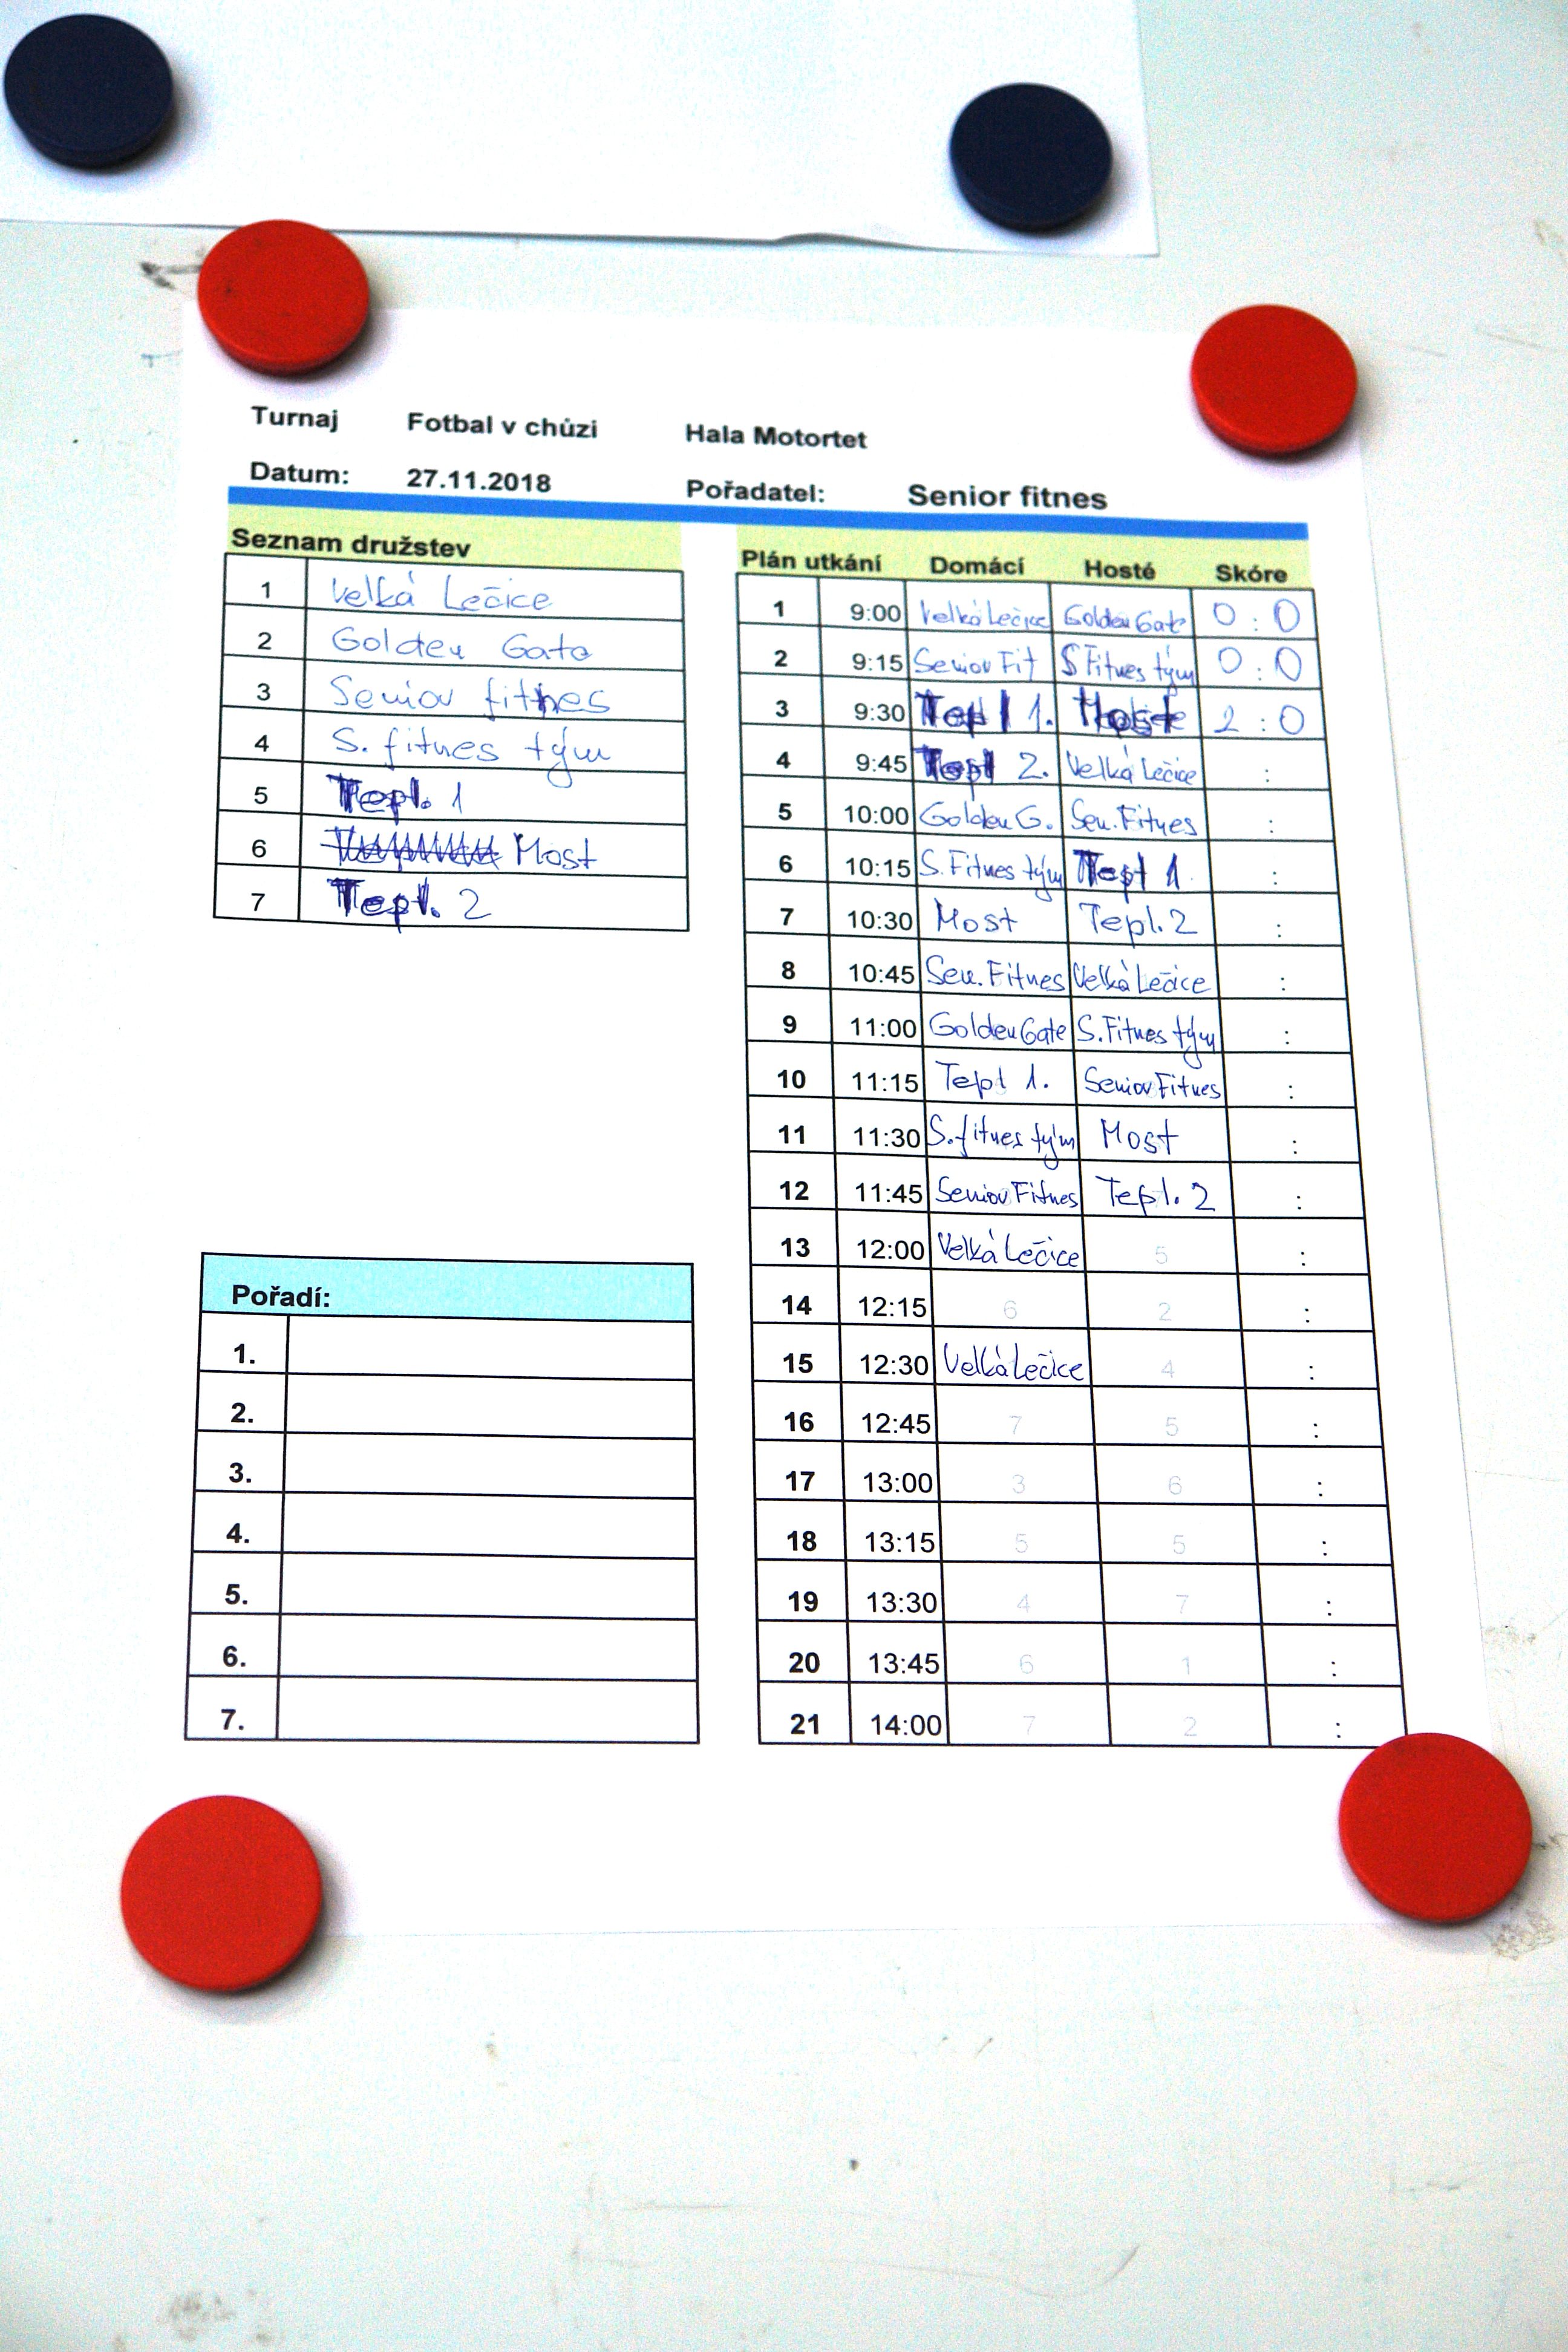 Turnaj Fotbal v chůzi Hala Motortet
Datum: 27.11.2018 Pořadatel: Senior fitnes
Seznam družstev
1 Velká Lečice
2 Golden Gate
3 Senior fitnes
4 S. fitnes tým
5 Tepl. 1
6 Most
7 Tepl. 2
Pořadí:
1.
2.
3.
4.
5.
6.
7.
Plán utkání Domácí Hosté Skóre
1 9:00 Velká Lečice Golden Gate 0 : 0
2 9:15 Senior Fit S Fitnes tým 0 : 0
3 9:30 Tepl 1. Most 2 : 0
4 9:45 Tepl 2. Velká Lečice :
5 10:00 Golden G. Sen. Fitnes :
6 10:15 S. Fitnes tým Tepl 1 :
7 10:30 Most Tepl. 2 :
8 10:45 Sen. Fitnes Velká Lečice :
9 11:00 Golden Gate S. Fitnes tým :
10 11:15 Tepl 1. Senior Fitnes :
11 11:30 S. fitnes tým Most :
12 11:45 Senior Fitnes Tepl. 2 :
13 12:00 Velká Lečice 5 :
14 12:15 6 2 :
15 12:30 Velká Lečice 4 :
16 12:45 7 5 :
17 13:00 3 6 :
18 13:15 5 5 :
19 13:30 4 7 :
20 13:45 6 1 :
21 14:00 7 2 :